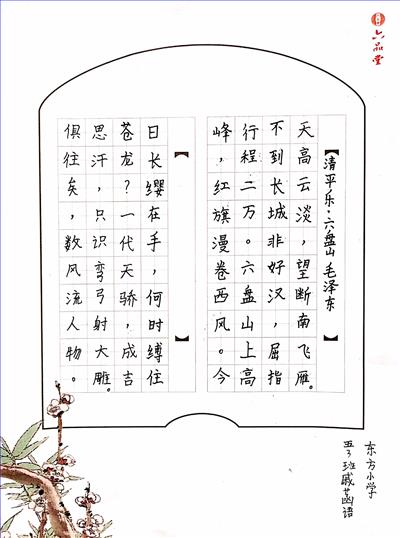 六品堂
【清平乐·六盘山 毛泽东】
天高云淡，望断南飞雁。
不到长城非好汉，屈指
行程二万。六盘山上高
峰，红旗漫卷西风。今
【 】
日长缨在手，何时缚住
苍龙？一代天骄，成吉
思汗，只识弯弓射大雕。
俱往矣，数风流人物。
东方小学
五3班戚菡语